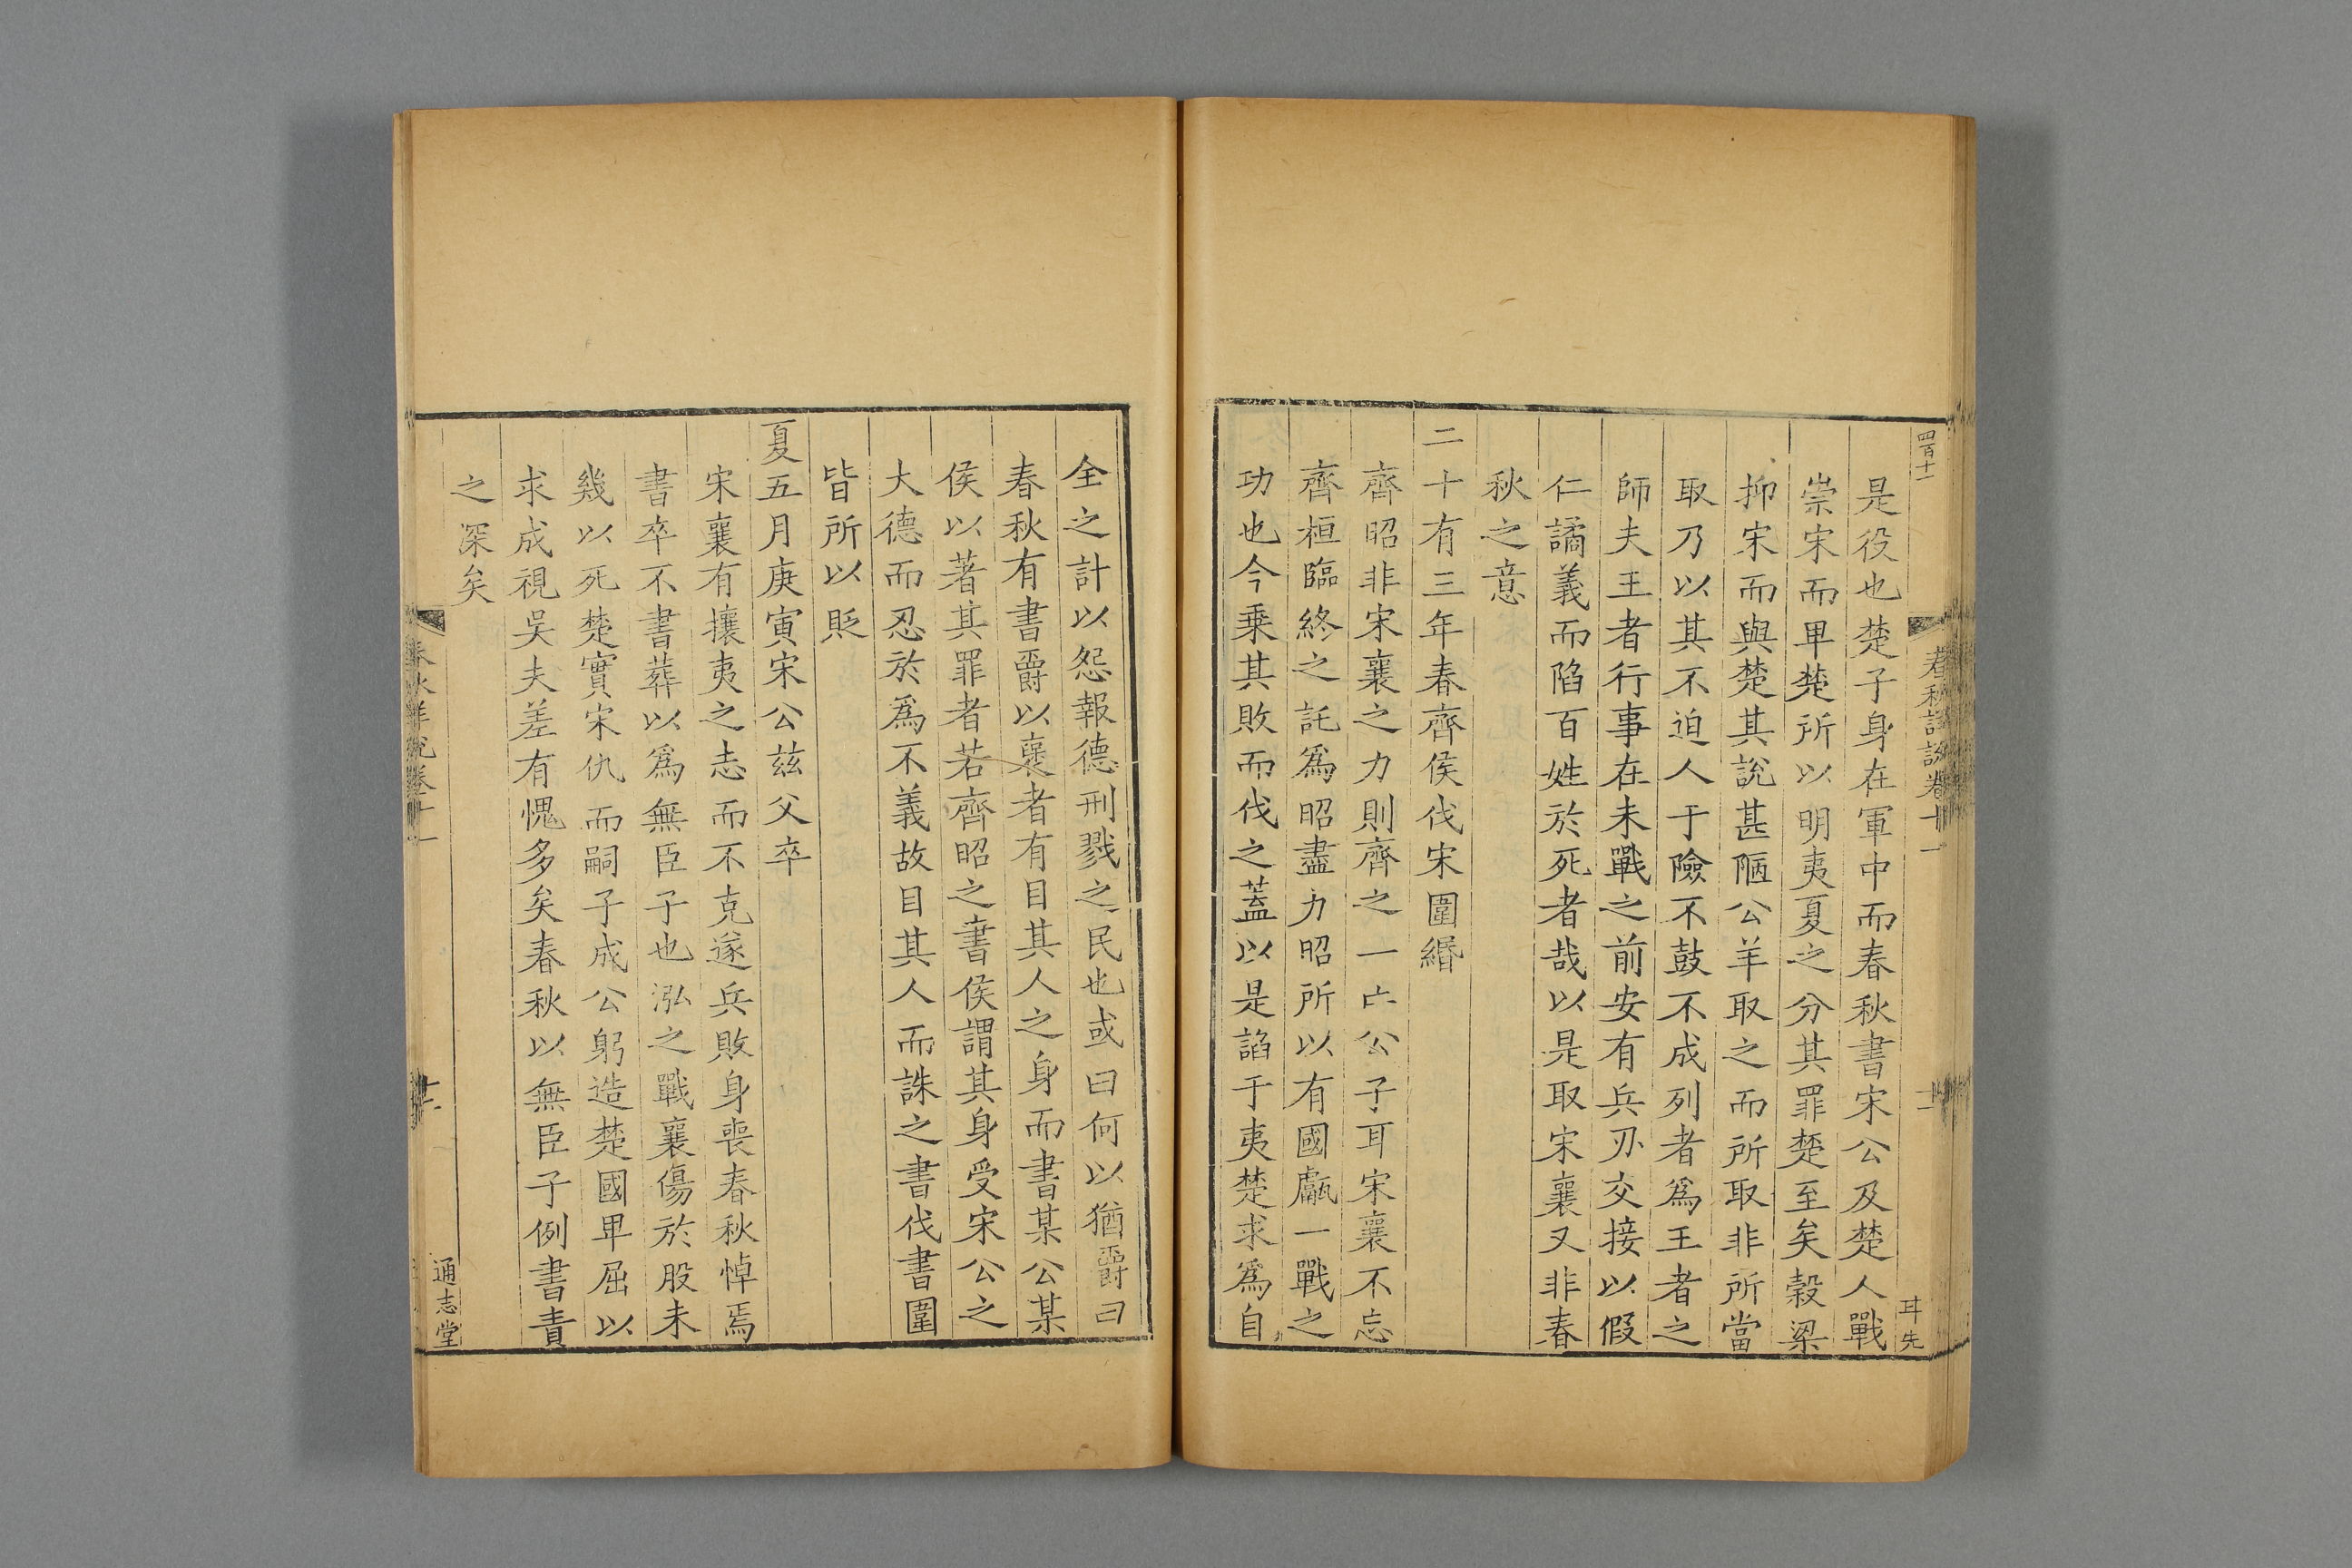 四百十一
春秋詳說卷十一
十一
耳先
是役也楚子身在軍中而春秋書宋公及楚人戰
崇宋而卑楚所以明夷夏之分其罪楚至矣榖梁
抑宋而與楚其說甚陋公羊取之而所取非所當
取乃以其不迫人于險不鼓不成列者爲王者之
師夫王者行事在未戰之前安有兵刅交接以假
仁譎義而陷百姓於死者哉以是取宋襄又非春
秋之意
二十有三年春齊侯伐宋圍緡
齊昭非宋襄之力則齊之一亡公子耳宋襄不忘
齊桓臨終之託爲昭盡力昭所以有國甗一戰之
功也今乗其敗而伐之蓋以是諂于夷楚求爲自
全之計以怨報德刑戮之民也或曰何以猶爵曰
春秋有書爵以襃者有目其人之身而書某公某
侯以著其罪者若齊昭之書侯謂其身受宋公之
大德而忍於爲不義故目其人而誅之書伐書圍
皆所以貶
夏五月庚寅宋公茲父卒
宋襄有攘夷之志而不克遂兵敗身喪春秋悼焉
書卒不書葬以爲無臣子也泓之戰襄傷於股未
幾以死楚實宋仇而嗣子成公躬造楚國卑屈以
求成視吳夫差有愧多矣春秋以無臣子例書責
之深矣
春秋詳說卷十一
通志堂